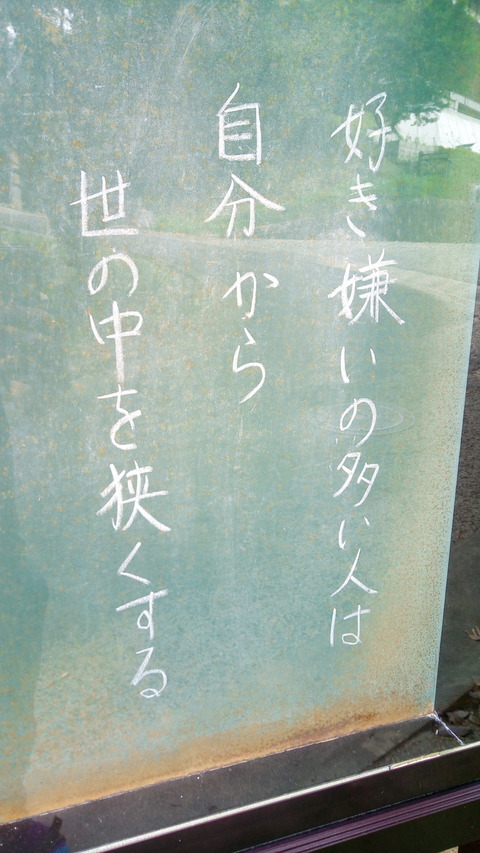 好き嫌いの多い人は
自分から
世の中を狭くする